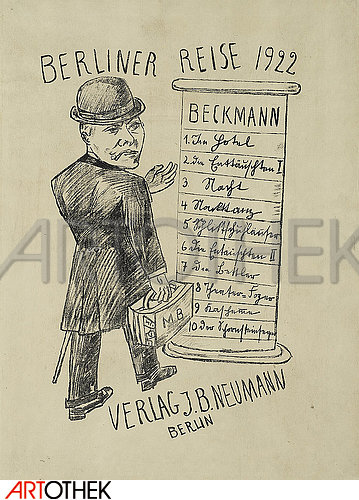 BERLINER REISE 1922
BECKMANN
1. Im Hotel
2. die Enttäuschten I
3 Nacht
4 Nackttanz
5 Schlittschuhläufer
6 die Entäuschten II
7 Die Bettler
8 Theater-Foyer
9 Kascheme
10 Der Schornsteinfeger
M.B
VERLAG J.B. NEUMANN
BERLIN
ARTOTHEK
ARTOTHEK